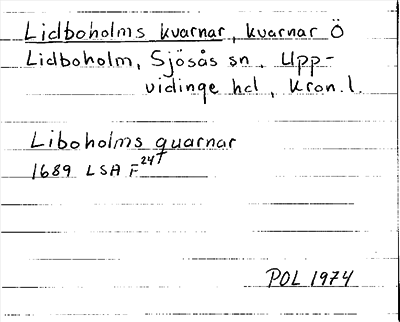 Lidboholms kvarnar, kvarnar Ö
Lidboholm, Sjösås sn. Upp-
vidinge hd, Kron.l.
Liboholms quarnar
1689 LSA F24T
POL 1974